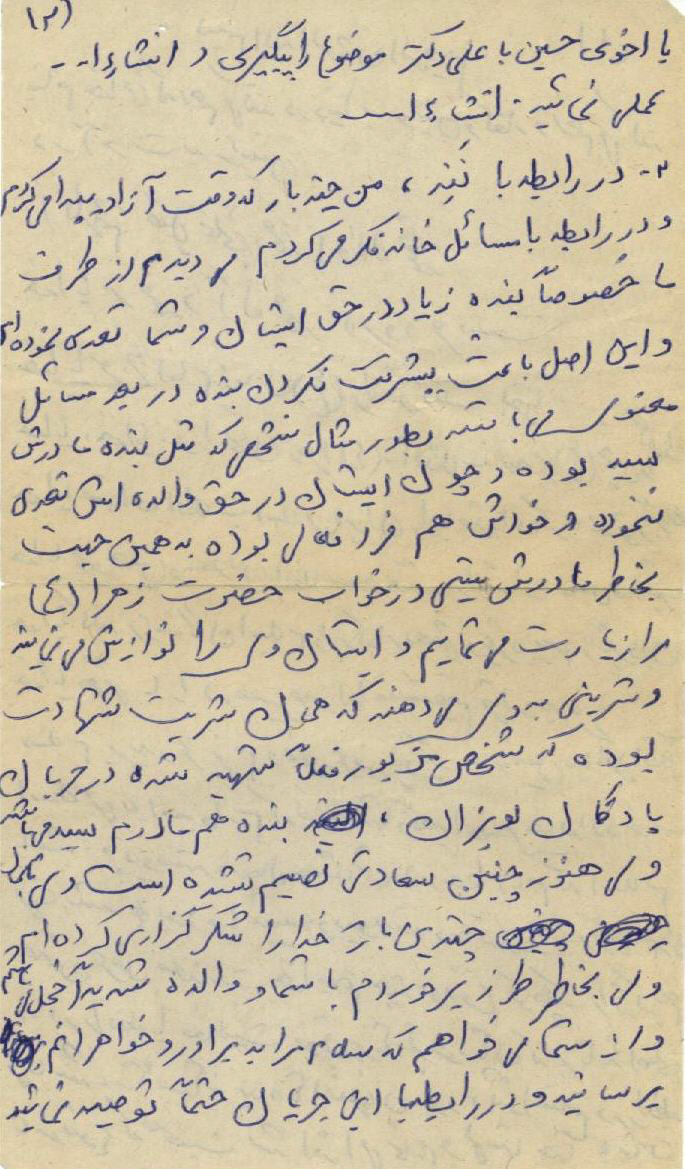 (۳)
با اخوی حسین با علی دکتر موضوع را پیگیری و انشاءا...
عملی نمائید. انشاءا...
۳- در رابطه با ننه، من چند بار که وقت آزاد پیدا می‌کردم
و در رابطه با مسائل خانه فکر می‌کردم می‌دیدم از طرف
ما خصوصاً بنده زیاد در حق ایشان و شما تعدی نموده‌ام
و این اصل باعث پیشرفت نکردن بنده در بعد مسائل
معنوی می‌باشد بطور مثال شخصی که مثل بنده مادرش
سید بوده و چون ایشان در حق والده‌اش تعدی
ننموده و خودش هم فرد فعالی بوده به همین جهت
بخاطر مادرش بیتی در خواب حضرت زهرا (ع)
را زیارت می‌نمایم و ایشان وی را نوازش می‌نمایند
و شربتی به وی می‌دهند که همان شربت شهادت
بوده که شخص مذبور فعلاً شهید شده در جریان
پادگان لویزان، بنده هم مادرم سید می‌باشد
ولی هنوز چنین سعادتی نصیبم نشده است ولی
چندین بار خدا را شکر گزاری کرده‌ام
ولی بخاطر طرز برخوردم با شما و والده شدیداً خجل
و از شما می‌خواهم که سلام مرا به برادر و خواهرانم
برسانید و در رابطه با این جریان حتماً توصیه نمائید